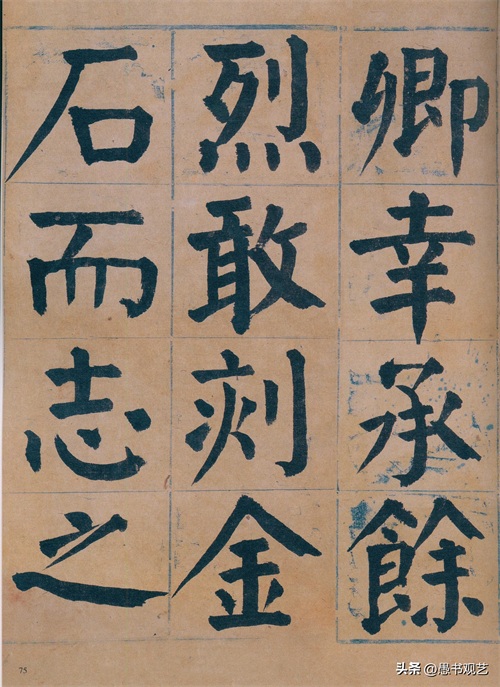 卿幸承餘
烈敢刻金
石而志之
75
头条 @愚书观艺